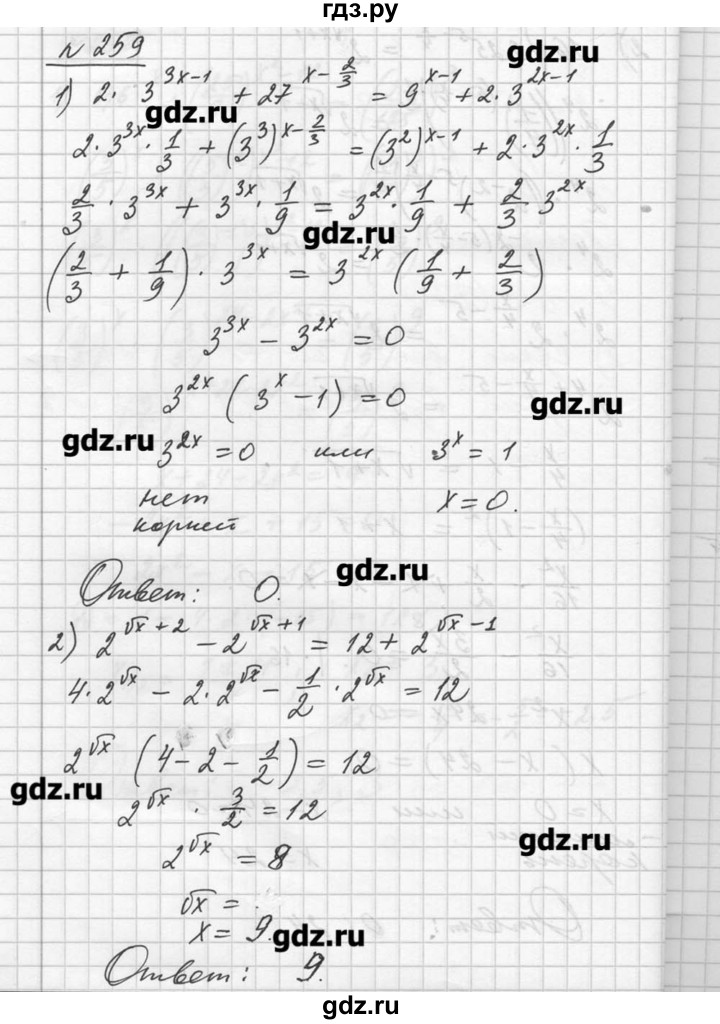 гдз.ру
№ 259
gdz.ru
1) 2·3^(3x-1) + 27^(x-2/3) = 9^(x-1) + 2·3^(2x-1)
gdz.ru
2·3^(3x)·1/3 + (3^3)^(x-2/3) = (3^2)^(x-1) + 2·3^(2x)·1/3
2/3·3^(3x) + 3^(3x)·1/9 = 3^(2x)·1/9 + 2/3 3^(2x)
gdz.ru
(2/3 + 1/9)·3^(3x) = 3^(2x) (1/9 + 2/3)
3^(3x) - 3^(2x) = 0
3^(2x) (3^x - 1) = 0
gdz.ru
gdz.ru
3^(2x) = 0 или 3^x = 1
нет x = 0.
корней
gdz.ru
Ответ: 0.
2) 2^(√x + 2) - 2^(√x + 1) = 12 + 2^(√x - 1)
4·2^√x - 2·2^√x - 1/2·2^√x = 12
2^√x (4 - 2 - 1/2) = 12
gdz.ru
2^√x · 3/2 = 12
gdz.ru
2^√x = 8
√x =
x = 9.
gdz.ru
Ответ: 9.
gdz.ru